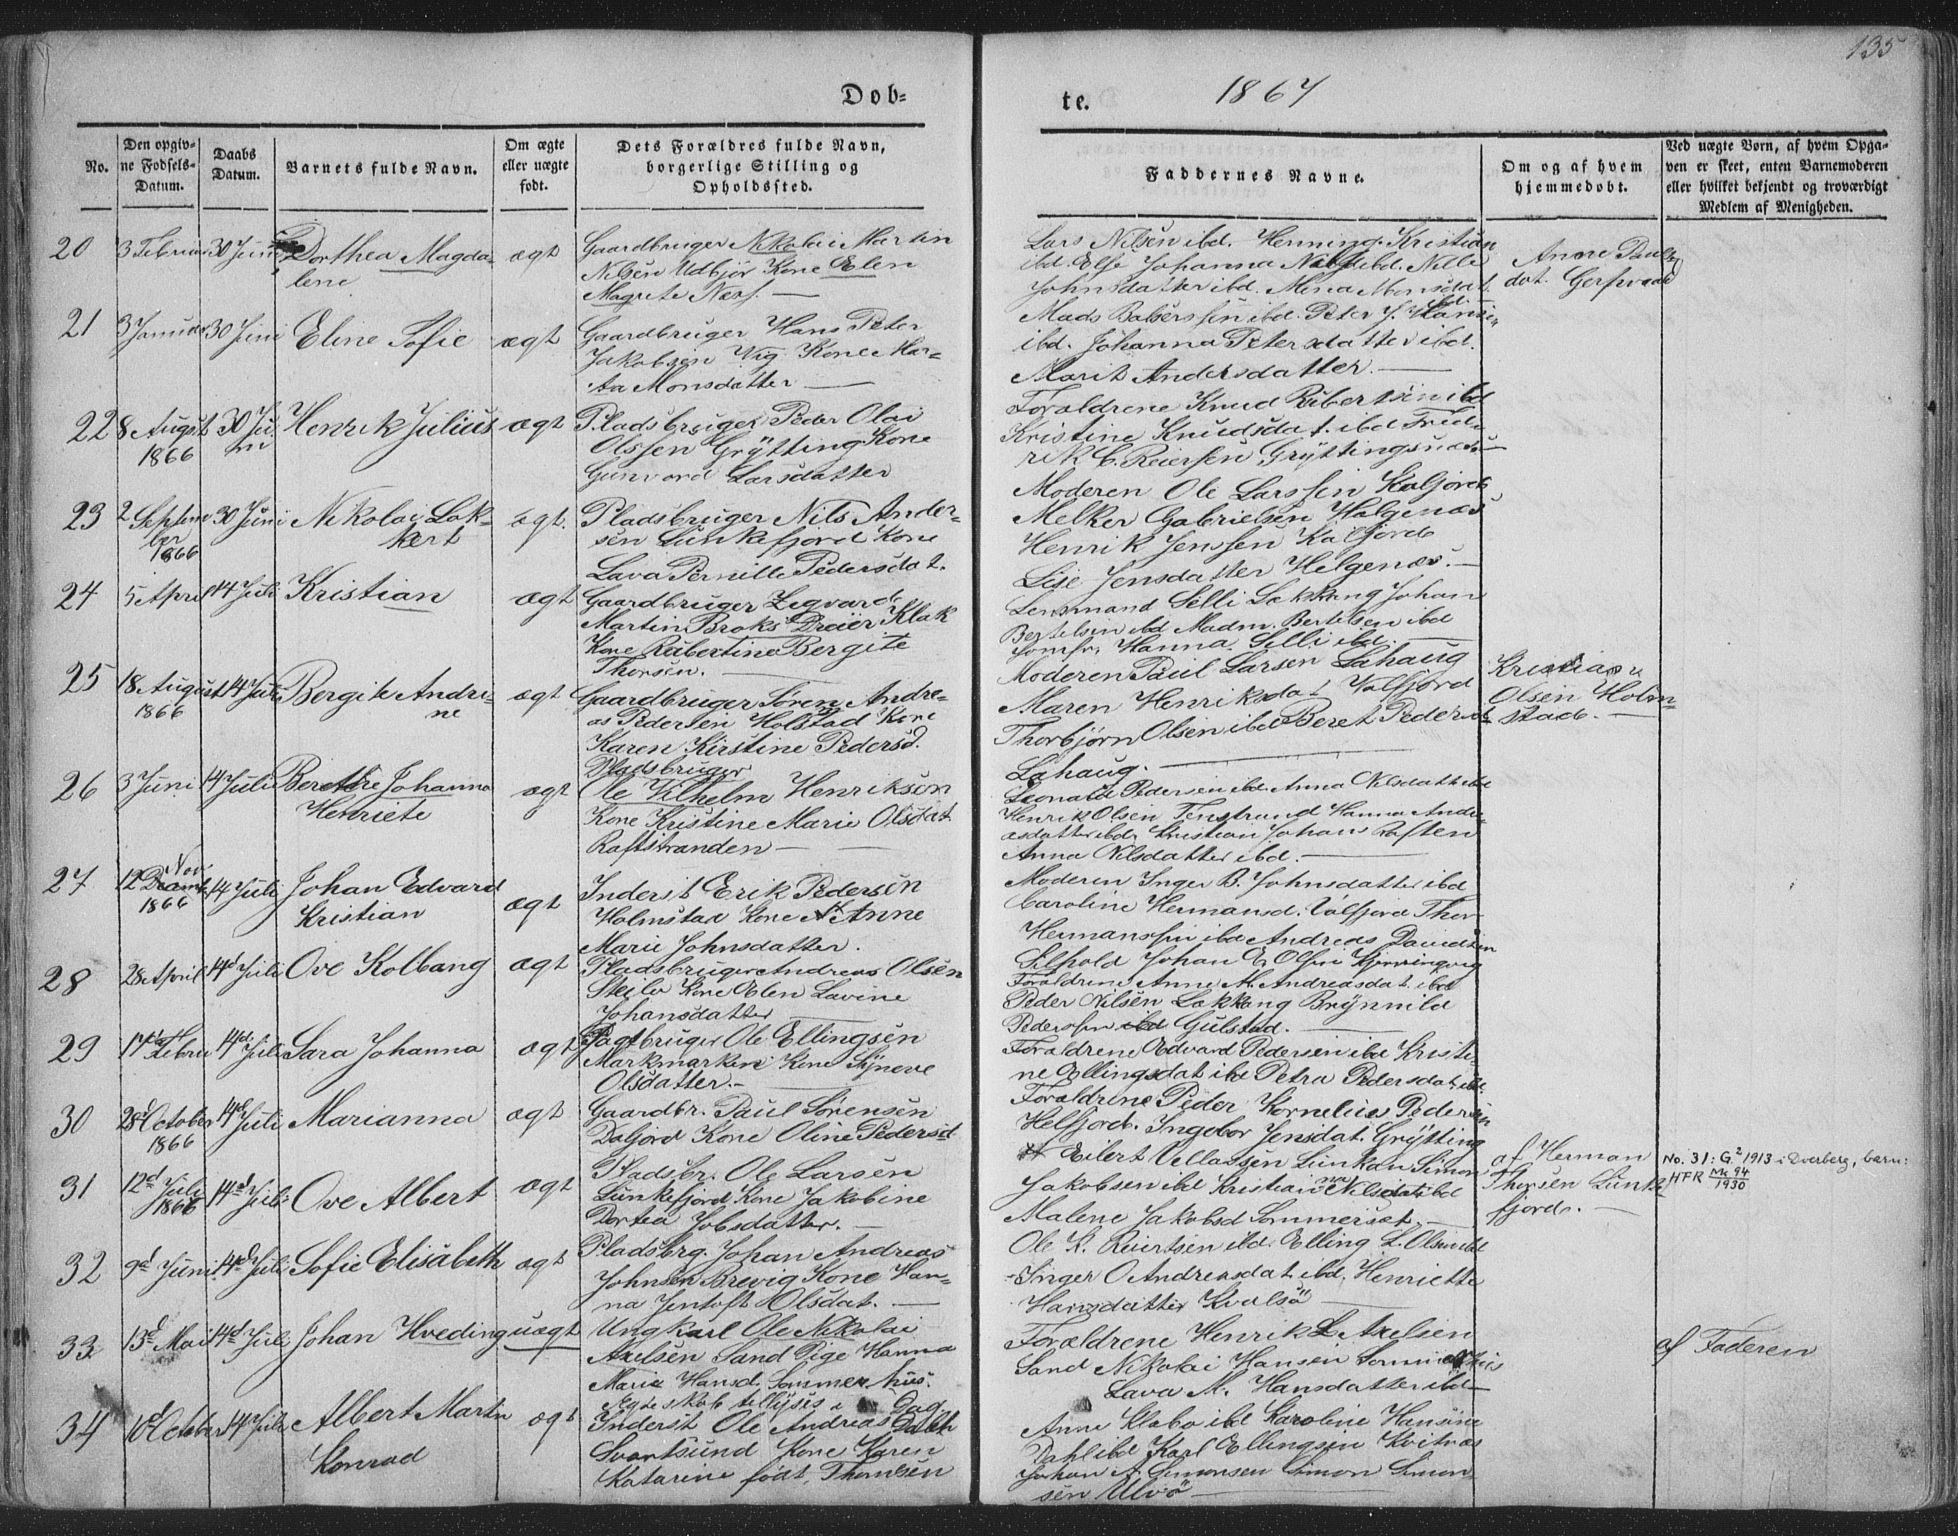 135
Dob=
te.
1867
No.
Den opgiv=
ne Fødsels=
Datum.
Daabs
Datum.
Barnets fulde Navn.
Om ægte
eller uægte
født.
Dets Forældres fulde Navn,
borgerlige Stilling og
Opholdssted.
Faddernes Navne.
Om og af hvem
hjemmedøbt.
Ved uægte Børn, af hvem Opga=
ven er skeet, enten Barnemoderen
eller hvilket bekjendt og troværdigt
Medlem af Menigheden.
20
3 Februar
30 Juni
Dorthea Magda-
lene
ægt
Gaardbruger Nikolai Martin
Nilsen Udbjör Kone Elen
Magrete Næss. —
Lars Nilsen ibd. Henning Kristian
ibd. Else Johanna Nilsd ibd. Nille
Johnsdatter ibd. Mina Monsdat.
Anne Pauls
dat.
21
3 Januar
30 Juni
Eline Sofie
ægt
Gaardbruger Hans Peter
Jakobsen Vig Kone Mar=
ta Monsdatter —
Mads Balsersen ibd. Peter J.
ibd. Johanna Petersdatter ibd.
Marit Andersdatter. —
22
8 August
1866
30 Ju
ni
Henrik Julius
ægt
Pladsbruger Peder Olai
Olssen Grÿtting Kone
Gunvord Larsdatter
Forældrene Knud Ribertsen ibd
Kristine Knudsdat. ibd Fred-
rik C. Reiersen Grÿttingsnæs —
23
2 Septem
ber
1866
30 Juni
Nikolai Lok-
kert
ægt.
Pladsbruger Nils Ander-
sen Lunkefjord Kone
Lava Pernille Pedersdat.
Moderen Ole Larssen Kaljord
Melker Gabrielsen Helgenæs
Henrik Jenssen Kaljord
Lise Jensdatter Helgenæs. —
24
5 April
14 Juli
Kristian
ægt
Gaardbruger Zegvard
Martin Broks Dreier Klak
Kone Rubertine Bergite
Thorsen. —
Lensmand Selli Lekkang Johan
Bertelsen ibd Madm. Bertelsen ibd
Jomfr. Hanna Selli ibd. —
25
18 August
1866
14 Juli
Bergite Andri-
ne
ægt
Gaardbruger Søren Andre-
as Pedersen Holstad Kone
Karen Kirstine Pedersd.
Moderen Paul Larsen Lahaug
Maren Henriksdat Valfjord
Thorbjörn Olsen ibd Beret Pedersd
Lahaug. —
Kristian
Olsen Holm-
stad. —
26
3 Juni
14 Juli
Berethe Johanna
Henriete
ægt
Pladsbruger
Ole Vilhelm Henriksen
Kone Kristine Marie Olsdat
Raftstranden —
Leonard Pedersen ibd Anna Nilsdatt ibd
Henrik Olsen Tenstrand Hanna Andre-
asdatter ibd. Kristian Johans Raften
Anna Nilsdatter ibd. —
27
12 Nov
1866
14 Juli
Johan Edvard
Kristian
ægt
Inderst Erik Pedersen
Holmstad Kone Anne
Marie Johnsdatter.
Moderen Inger B. Johnsdatter ibd
Caroline Hermansd. Valfjord Thor
Hermanssen ibd Andreas Davidsen
Johan Olsen
28
28 April
14d Juli
Ove Kolbang
ægt
Pladsbruger Andreas Olsen
Steilo Kone Elen Lavine
Johansdatter —
Forældrene Anne M. Andreasdat ibd
Peder Nilsen Lekkang Brÿnnild
Pederssen Gulstad. —
29
17de Febru
14d Juli
Sara Johanna
ægt
Pagtbruger Ole Ellingsen
Markmarken Kone Sÿneve
Olsdatter. —
Forældrene Edvard Pedersen ibd Kristi-
ne Ellingsdat ibd Petra Pedersdat ibd.
30
28d October
1866
14d Juli
Marianna
ægt
Gaardbr. Paul Sörensen
Daljord Kone Oline Pedersd
Forældrene Peder Kornelius Pedersen
Helfjord. Ingebor Jensdat. Grÿtting
31
12d Juli
1866
14d Juli
Ove Albert
ægt
Pladsbr. Ole Larsen
Lunkefjord Kone Jakobine
Dortea Jobsdatter. —
Eilert Vellassen Lunkan Simon
Jakobsen ibd Kristianna Nilsdat ibd
Malene Jakobsd Sommerset. —
af Herman
Thorsen Lunke
fjord. —
No. 31: G² 1913 i Dverberg, barn:
HFR Mk 94
1930
32
9d Juni
14d Juli
Sofie Elisabeth
ægt
Pladsbrg. Johan Andreas
Johnsen Brevig Kone Han-
na Jentoft Olsdat. —
Ole K. Reiertsen ibd. Elling L. Olsen ibd
Inger O Andreasdat ibd, Henriette
Hansdatter Kvalsö —
33
13d Mai
14d Juli
Johan Hveding
uægt
Ungkarl Ole Nikolai
Axelsen Sand Pige Hanna
Marie Hansd. Sommerhus.
Ægteskab tillÿses i Dag
Forældrene Henrik L Axelsen
Sand Nikolai Hansen Sommerhus
Lava M. Hansdatter ibd —
af Faderen
34
10d October
14 Juli
Albert Martin
Konrad
ægt
Inderst Ole Andreas Dahl
Svartsund Kone Karen
Katarine født Thomesen
Anne Klabo ibd Karoline Hansine
Dahl ibd Karl Ellingsen Kvitnæs
Johan A. Simonsen Simon Simon-
sen Ulvö —